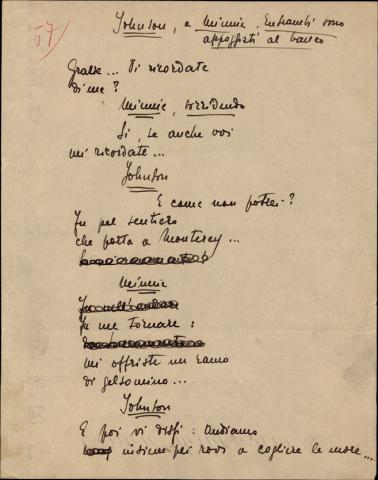 57
Johnson, a Minnie. Entrambi sono
appoggiati al banco
Grazie... Vi ricordate
di me?
Minnie, sorridendo
Sì, se anche voi
mi ricordate...
Johnson
E come non potrei?
Fu pel sentiero
che porta a Monterey...
Minnie
Fu nel tornare:
mi offriste un ramo
di gelsomino...
Johnson
E poi vi dissi: Andiamo
insieme pei rovi a cogliere le more...